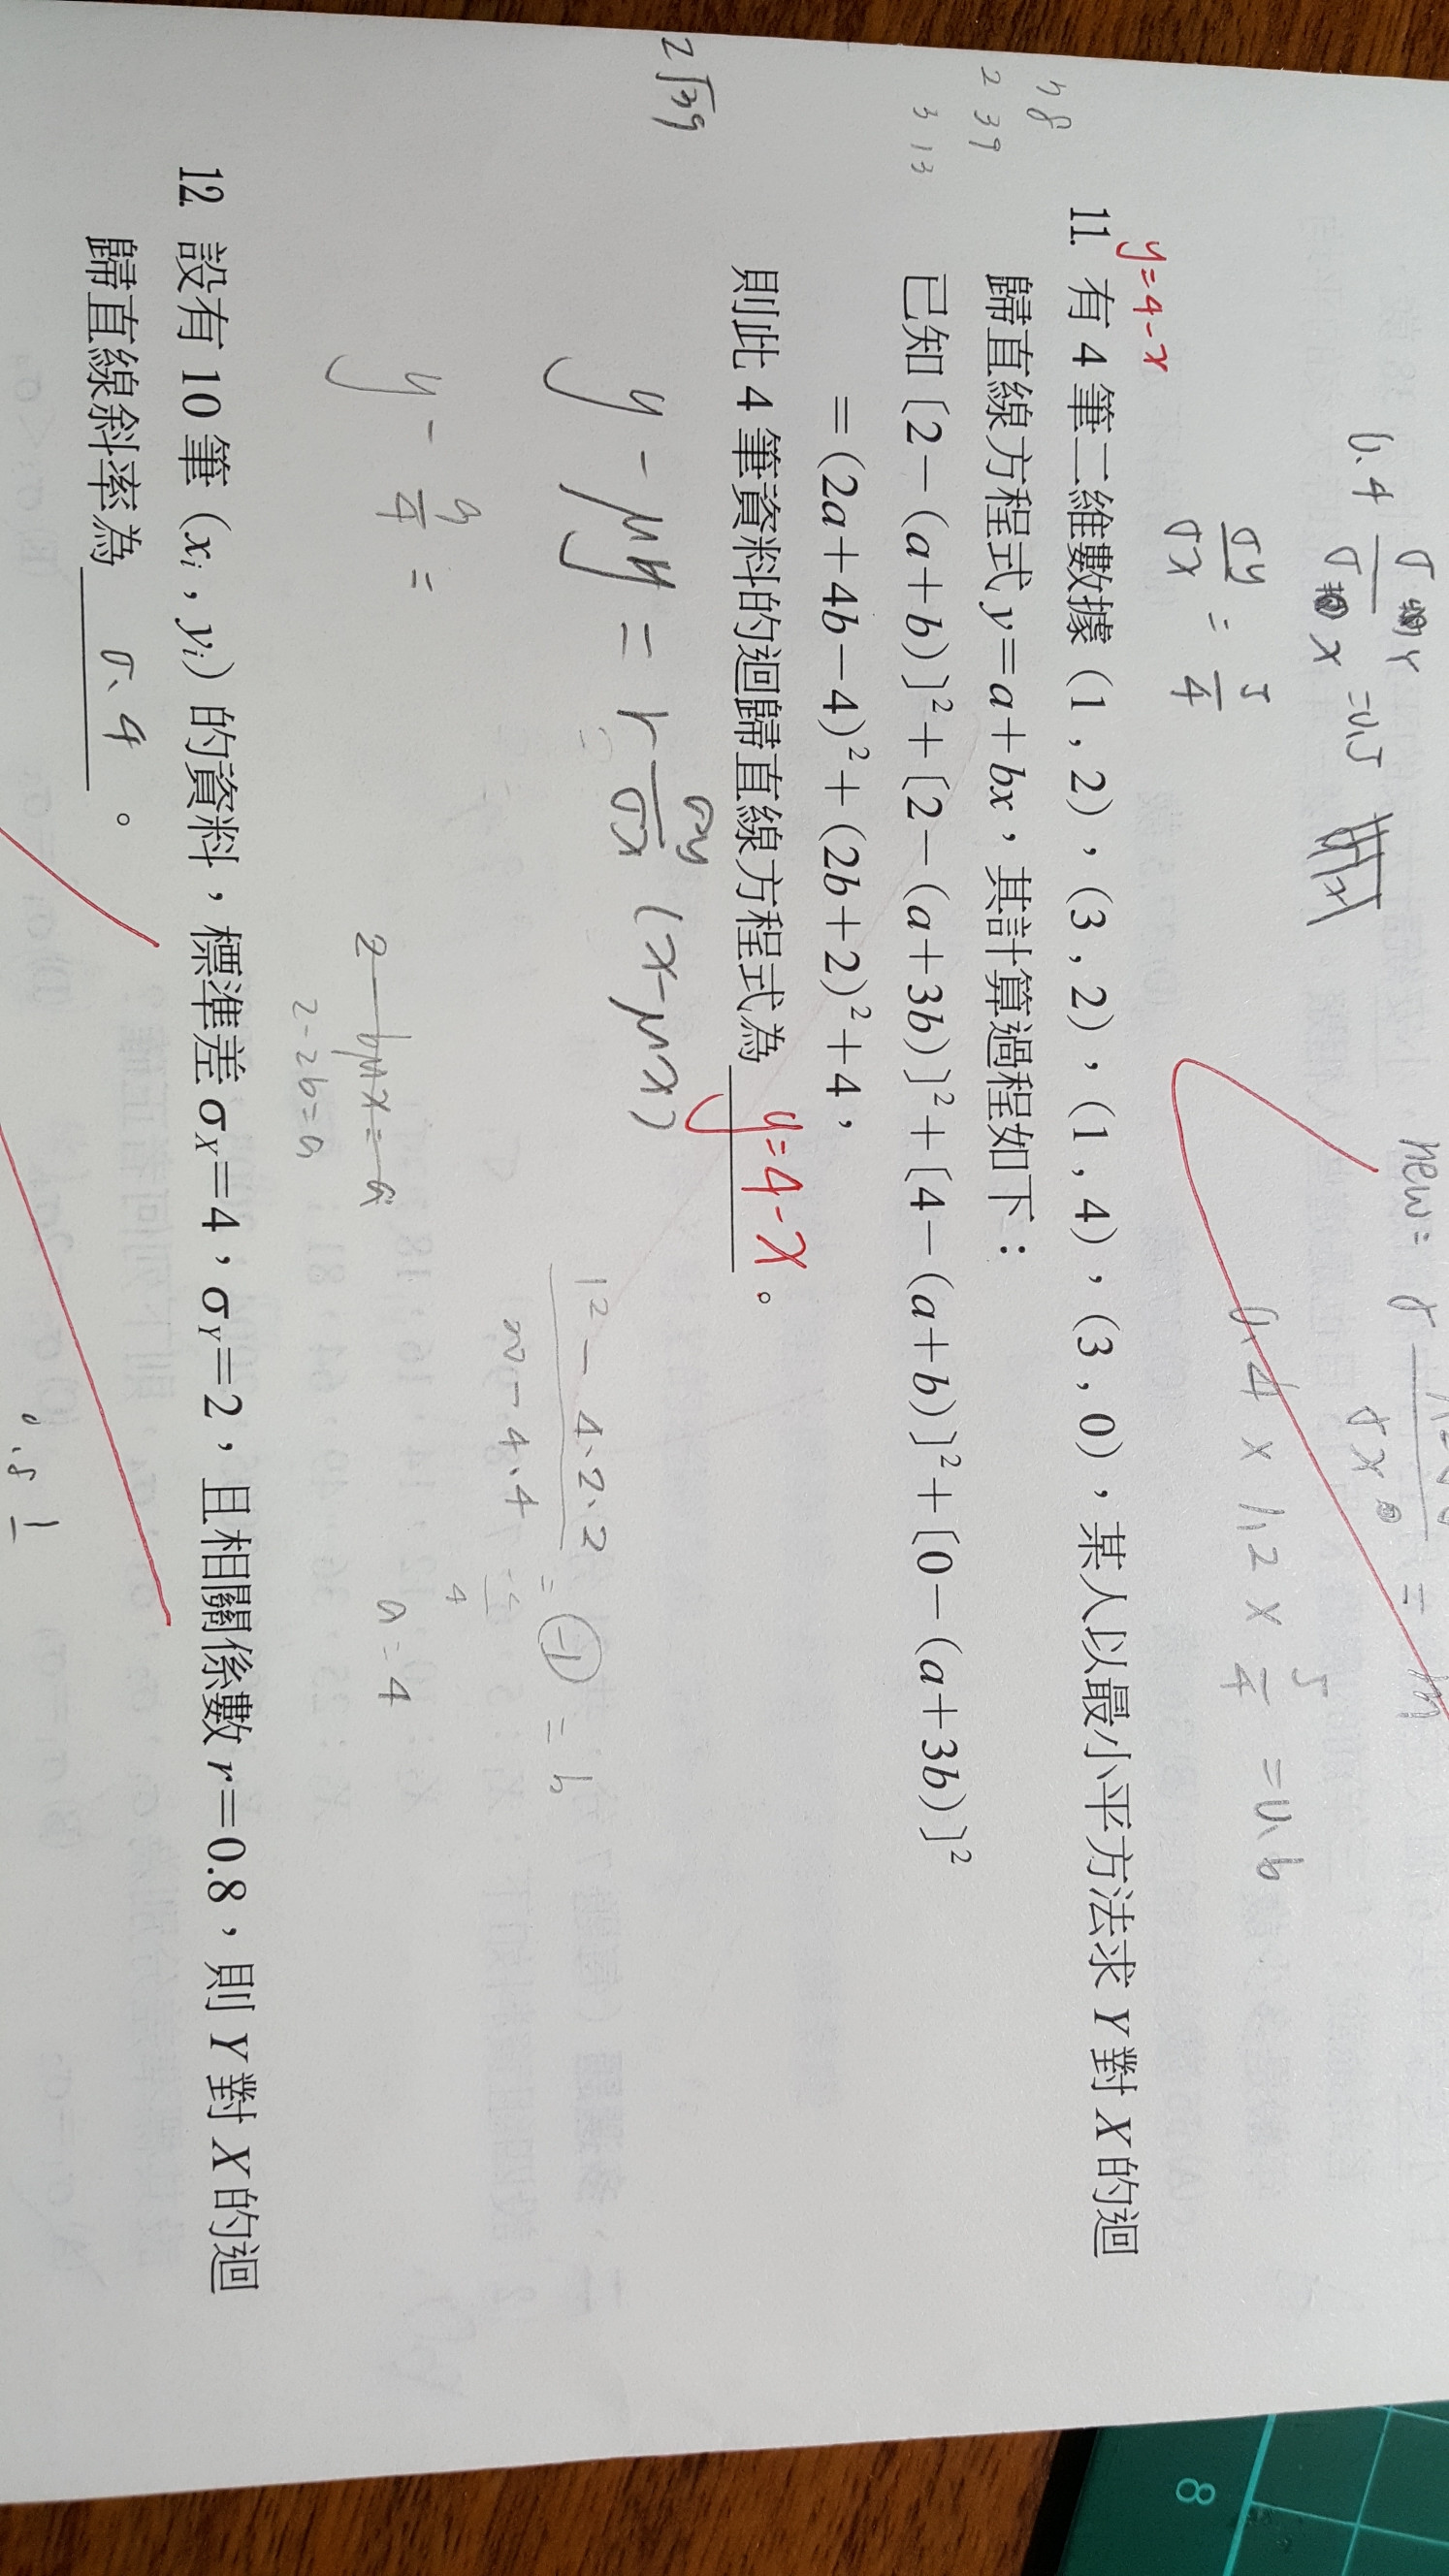 0.4 σY/σX = 0.5
new = r
σy/σx = 5/4
0.4 × 1.2 × 5/4 = 0.6
y=4-x
78
2 39
3 13
11. 有 4 筆二維數據 (1 , 2),(3 , 2),(1 , 4),(3 , 0),某人以最小平方法求 Y 對 X 的迴
歸直線方程式 y=a+bx,其計算過程如下:
已知〔2-(a+b)〕²+〔2-(a+3b)〕²+〔4-(a+b)〕²+〔0-(a+3b)〕²
=(2a+4b-4)²+(2b+2)²+4,
則此 4 筆資料的迴歸直線方程式為 y=4-x 。
2√39
y - μy = r σy/σx (x-μx)
12 - 4.2.2
= -1 = b
a = 4
2-2b=a
12. 設有 10 筆 (xᵢ , yᵢ) 的資料,標準差 σX=4,σY=2,且相關係數 r=0.8,則 Y 對 X 的迴
歸直線斜率為 0.4 。
8